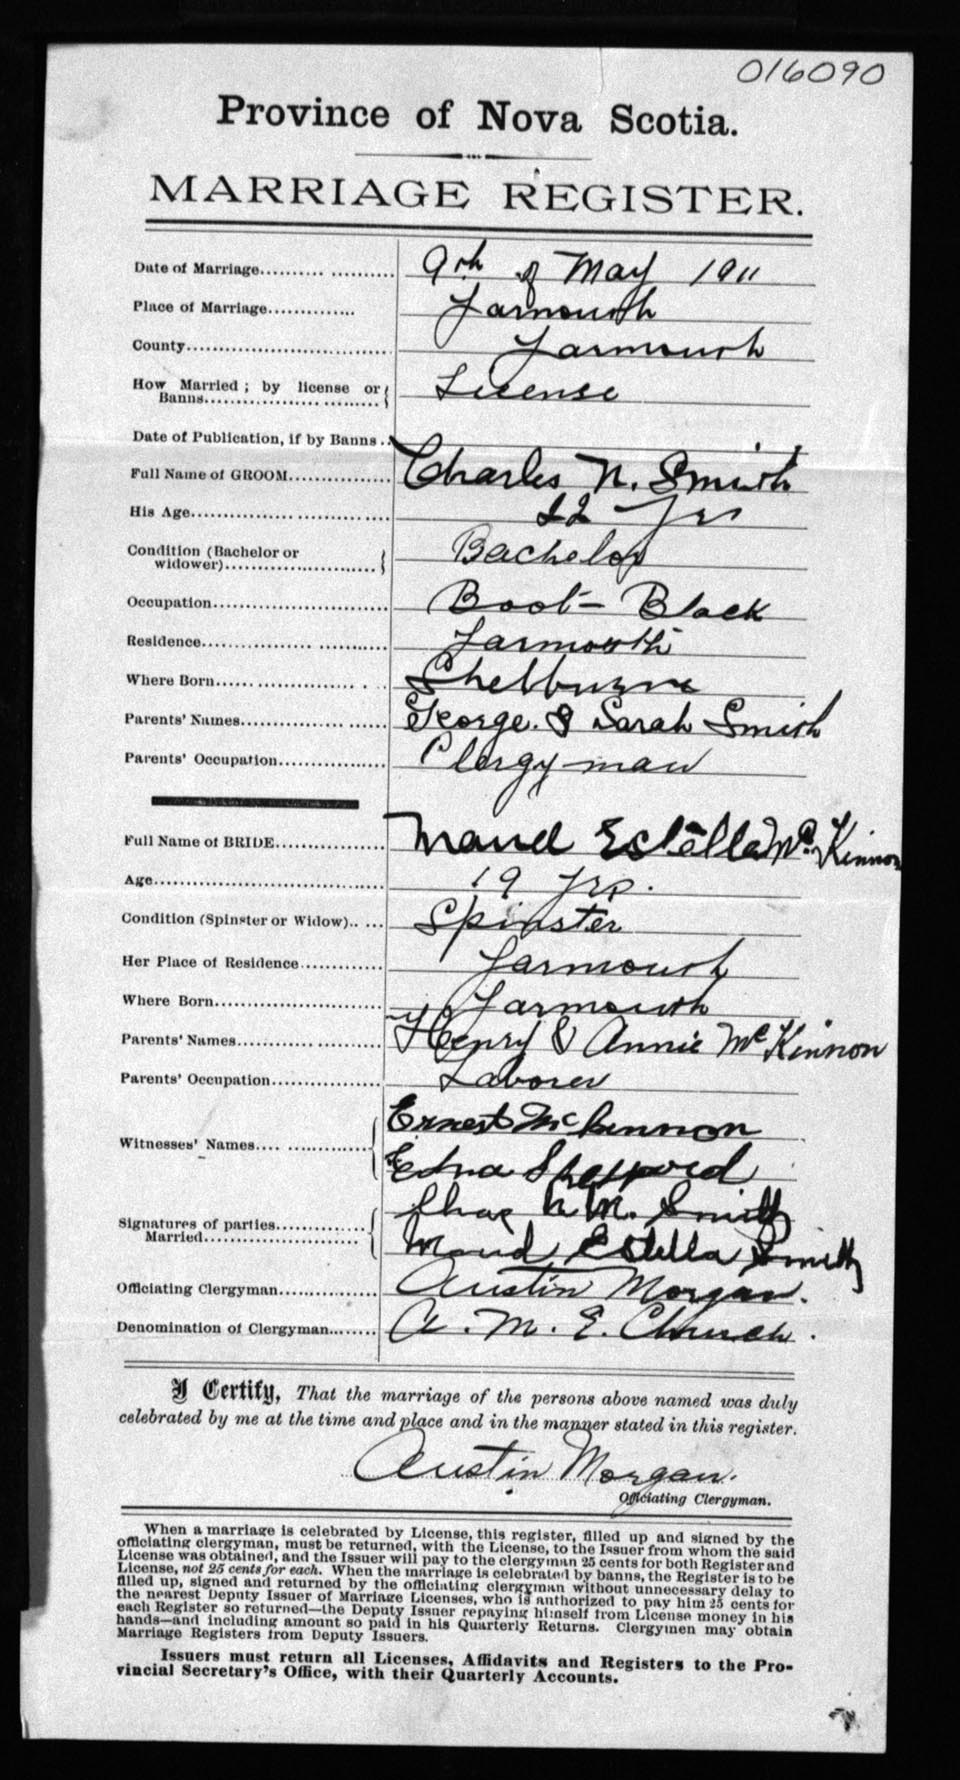 016090
Province of Nova Scotia.
MARRIAGE REGISTER.
Date of Marriage.......... .......... 9th of May 1911
Place of Marriage............. Yarmouth
County............................... Yarmouth
How Married ; by license or
Banns.................... ......... License
Date of Publication, if by Banns ..
Full Name of GROOM............... Charles N. Smith
His Age.............................. 22 Yrs
Condition (Bachelor or
widower)........................... Bachelor
Occupation.......................... Boot-Black
Residence................. .......... Yarmouth
Where Born...... ............. . .. Shelburne
Parents' Names............... ...... George & Sarah Smith
Parents' Occupation................ Clergyman
Full Name of BRIDE................ Maud Estella McKinnon
Age................................... 19 yrs.
Condition (Spinster or Widow).. ... Spinster
Her Place of Residence............ Yarmouth
Where Born......................... Yarmouth
Parents' Names............... ..... Henry & Annie McKinnon
Parents' Occupation................ Laborer
Witnesses' Names.... .............. Ernest McKinnon
Edna Sheppard
Signatures of parties............... Chas N. M. Smith
Married........................ Maud Estella Smith
Officiating Clergyman............... Austin Morgan.
Denomination of Clergyman....... A. M. E. Church.
I Certify, That the marriage of the persons above named was duly
celebrated by me at the time and place and in the manner stated in this register.
Austin Morgan.
Officiating Clergyman.
When a marriage is celebrated by License, this register, filled up and signed by the
officiating clergyman, must be returned, with the License, to the Issuer from whom the said
License was obtained, and the Issuer will pay to the clergyman 25 cents for both Register and
License, not 25 cents for each. When the marriage is celebrated by banns, the Register is to be
filled up, signed and returned by the officiating clergyman without unnecessary delay to
the nearest Deputy Issuer of Marriage Licenses, who is authorized to pay him 25 cents for
each Register so returned—the Deputy Issuer repaying himself from License money in his
hands—and including amount so paid in his Quarterly Returns. Clergymen may obtain
Marriage Registers from Deputy Issuers.
Issuers must return all Licenses, Affidavits and Registers to the Pro-
vincial Secretary's Office, with their Quarterly Accounts.